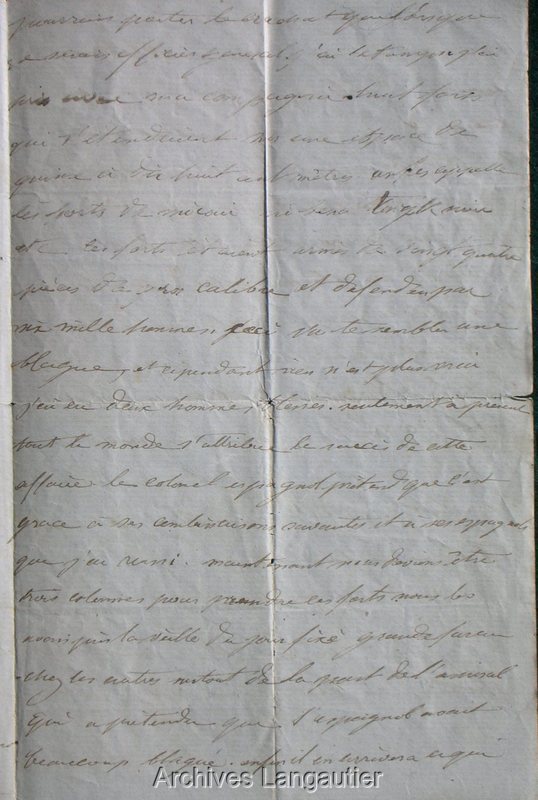 pourrais porter le crachat que lorsque
je serais officier général. j'ai
pris avec ma compagnie huit forts
qui s'étendaient sur une espace de
quinze à dix huit cent mètres on les appelle
les forts de
et c ces forts étaient armés de vingt quatre
pièces de gros calibre et defendu par
six mille hommes, ceci va te sembler une
blague, et cependant rien n'est plus vrai
j'ai eu deux hommes blessés. seulement à présent
tout le monde s'attribue le succès de cette
affaire le colonel espagnol prétend que c'est
grace à ses combinaisons savantes et a ses espagnols
que j'ai reussi. maintenant nous devions être
trois colonnes pour prendre ces forts nous les
avons pris la veille du jour fixé grande fureur
chez les autres surtout de la part de l'amiral
qui a prétendu que l'espagnol avait
beaucoup blagué. enfin il en arrivera ce qui
Archives Langautier